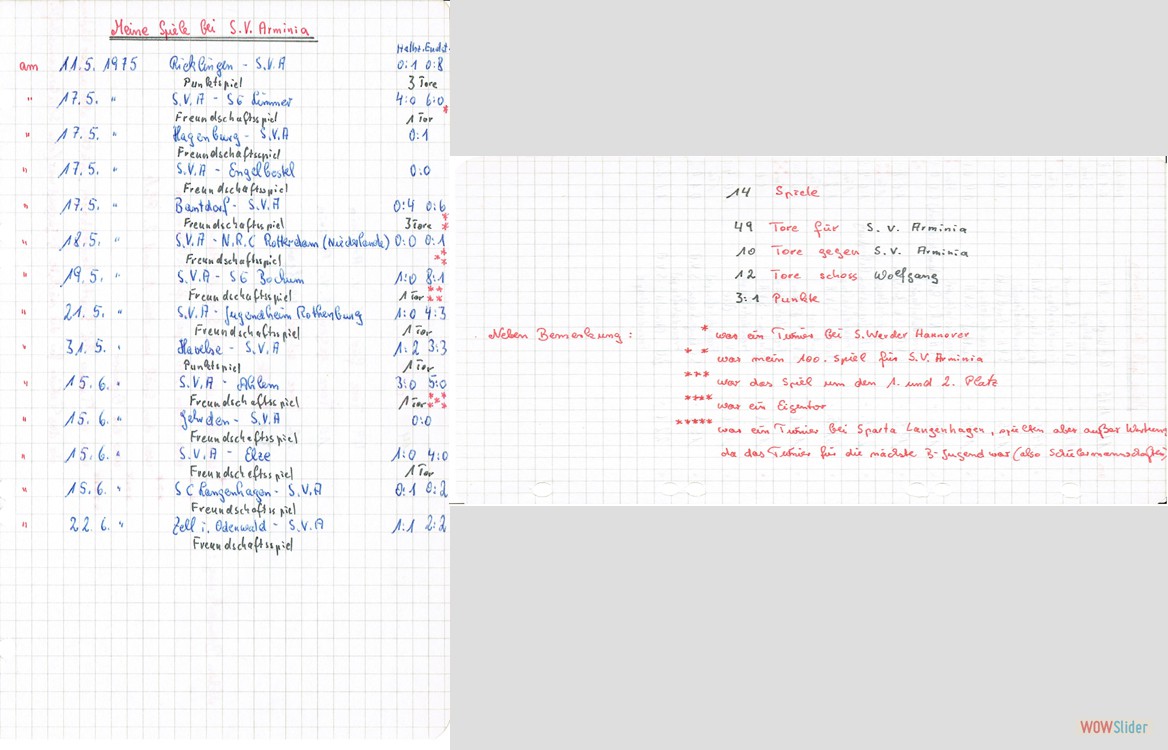 Meine Spiele bei S.V. Arminia
Halbz. Endst.
am 11.5. 1975 Ricklingen - S.V.A 0:1 0:8
Punktspiel 3 Tore
" 17.5. " S.V.A - SG Limmer 4:0 6:0
Freundschaftsspiel 1 Tor *
" 17.5. " Hagenburg - S.V.A 0:1
Freundschaftsspiel
" 17.5. " S.V.A - Engelbostel 0:0
Freundschaftsspiel
" 17.5. " Bantdorf - S.V.A 0:4 0:6
Freundschaftsspiel 3 Tore *
" 18.5. " S.V.A - N.R.C Rotterdam (Niederlande) 0:0 0:1
Freundschaftsspiel **
" 19.5. " S.V.A - SG Bochum 1:0 8:1
Freundschaftsspiel 1 Tor ****
" 21.5. " S.V.A - Jugendheim Rothenburg 1:0 4:3
Freundschaftsspiel 1 Tor
" 31.5. " Havelse - S.V.A 1:2 3:3
Punktspiel 1 Tor
" 15.6. " S.V.A - Ahlem 3:0 5:0
Freundschaftsspiel 1 Tor *****
" 15.6. " Gehrden - S.V.A 0:0
Freundschaftsspiel
" 15.6. " S.V.A - Elze 1:0 4:0
Freundschaftsspiel 1 Tor
" 15.6. " SC Langenhagen - S.V.A 0:1 0:2
Freundschaftsspiel
" 22.6. " Zell i. Odenwald - S.V.A 1:1 2:2
Freundschaftsspiel
14 Spiele
49 Tore für S. V. Arminia
10 Tore gegen S.V. Arminia
12 Tore schoss Wolfgang
3:1 Punkte
Neben Bemerkung :
* war ein Turnier bei S.Werder Hannover
** war mein 100. Spiel für S.V. Arminia
*** war das Spiel um den 1. und 2. Platz
**** war ein Eigentor
***** war ein Turnier bei Sparta Langenhagen, spielten aber außer Wertung
da das Turnier für die nächste Jugend war (also Schülermannschaften)
WOWSlider